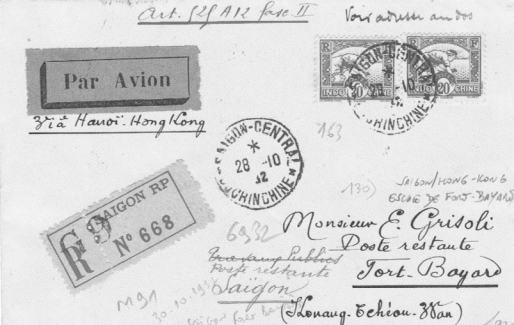 Art. 525 A12 fasc II
Voir adresse au dos
Par Avion
Viâ Hanoï-Hong Kong
R F
INDOCHINE
20
R F
INDOCHINE
20
SAIGON-CENTRAL
28 -10
COCHINCHINE
SAIGON-CENTRAL
*
28 -10
32
COCHINCHINE
163
130)
SAIGON/HONG-KONG
ESCALE DE FORT-BAYARD
R
SAIGON RP
N° 668
6932
Monsieur E. Grisoli
Poste restante
Fort-Bayard
(Kouang-Tchéou-Wan)
Travaux Publics
Poste restante
Saïgon